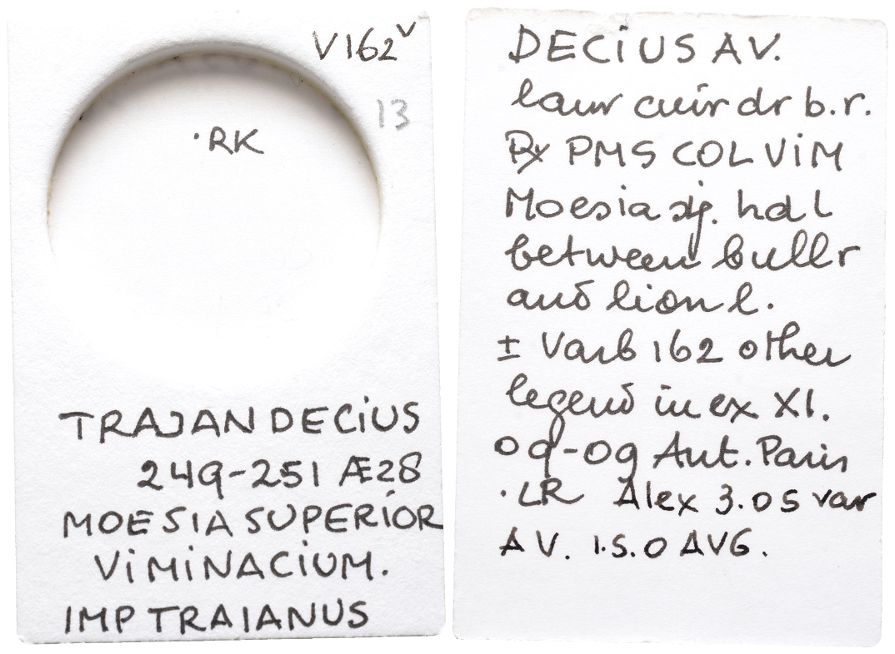 V162v
13
·RK
TRAJAN DECiUS
249-251 Æ28
MOESIA SUPERiOR
ViMiNACiUM.
IMP TRAIANUS
DECiUS AV.
laur cuir dr b.r.
Rx PMS COL ViM
Moesia stg. hd l
between bull r
and lion l.
± Varb 162 other
legend in ex XI.
09-09 Aut. Paris
·LR Alex 3.05 var
AV. i.s.o AVG.